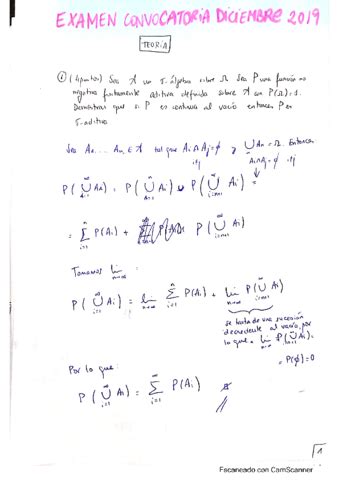 EXAMEN CONVOCATORIA DICIEMBRE 2019
TEORIA
① (4 puntos) Sea A un σ-álgebra sobre Ω. Sea P una función no
negativa finitamente aditiva definida sobre A con P(Ω)=1.
Demostrar que si P es continua al vacío entonces P es
σ-aditiva
Sea A₁... Aₙ ∈ A tal que Aᵢ∩Aⱼ=∅ y ∪Aₙ=Ω. Entonces
i≠j Aᵢ∩Aⱼ=∅ i≠j
P(∪Aₙ) = P(∪Aᵢ) P(∪Aᵢ) =
= Σ P(Aᵢ) + P(∪Aᵢ)
Tomamos lim n→∞
P(∪Aᵢ) = lim Σ P(Aᵢ) + lim P(∪Aᵢ)
se trata de una sucesión
decreciente al vacío, por
lo que lim P(∪Aᵢ)=
= P(∅)=0
Por lo que:
P(∪Aᵢ) = Σ P(Aᵢ)
1
Escaneado con CamScanner